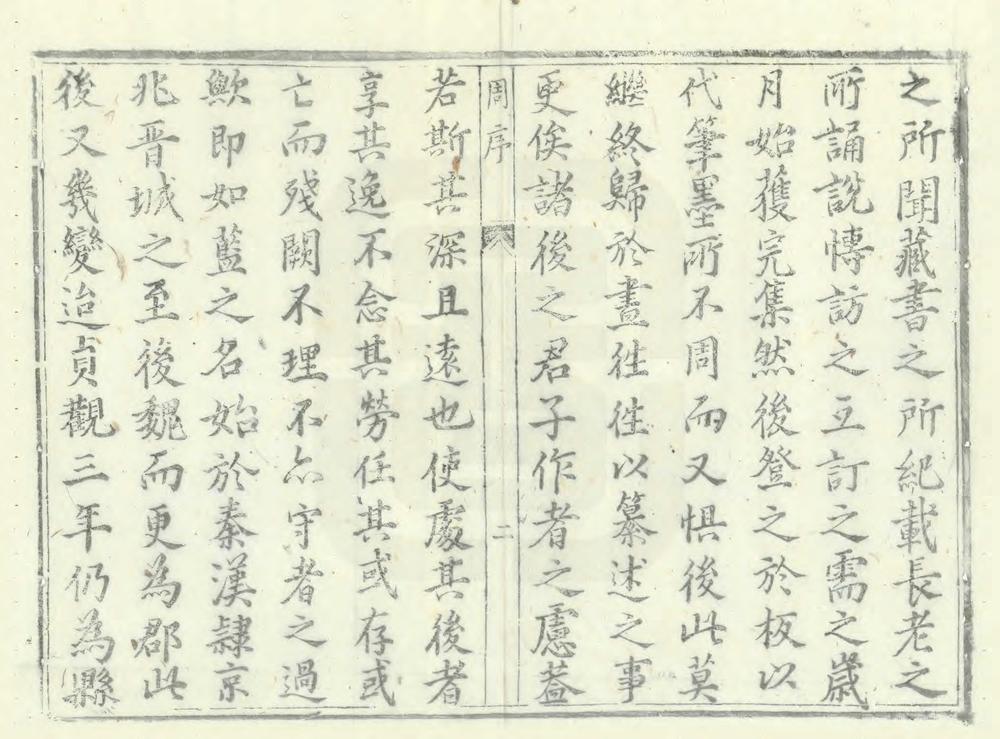 之所聞藏書之所紀載長老之
所誦說慱訪之互訂之需之歲
月始獲完集然後登之於板以
代筆墨所不周而又惧後此莫
繼終歸於晝徃徃以纂述之事
更俟諸後之君子作者之慮葢
周序
二
若斯其深且逺也使處其後者
享其逸不念其勞任其或存或
亡而殘闕不理不亦守者之過
歟即如藍之名始於秦漢隷京
兆晋城之至後魏而更為郡此
後又幾變迨貞觀三年仍為縣